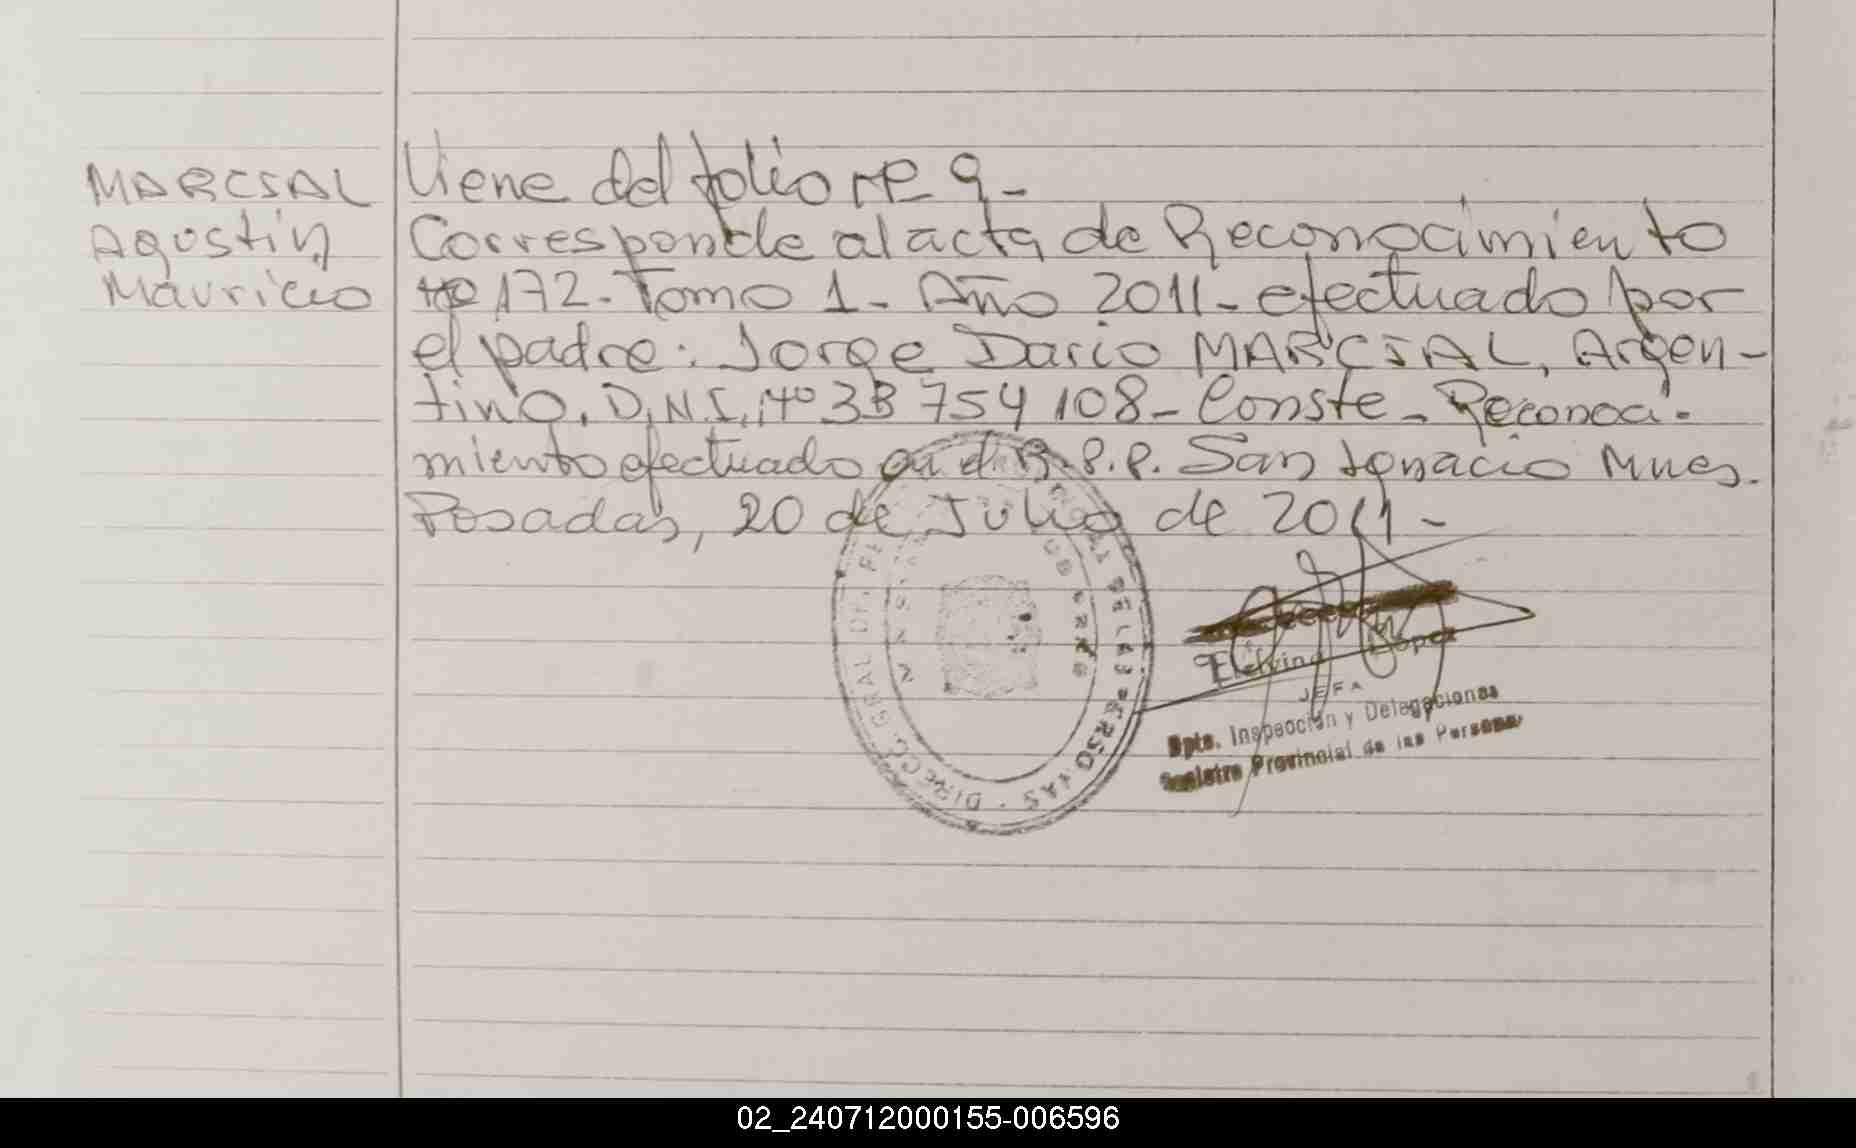 MARCIAL
Agustin
Mauricio
Viene del folio Nº 9-
Corresponde al acta de Reconocimiento
Nº 172- Tomo 1- Año 2011- efectuado por
el padre: Jorge Dario MARCIAL, Argen-
tino, D.N.I. Nº 33 754 108- Conste- Reconoci-
miento efectuado en el R.P.P. San Ignacio Mnes.
Posadas, 20 de Julio de 2011-
DIRECC. GRAL DEL DE LAS PERSONAS
López
JEFA
Dpto. Inspección y Delegaciones
Registro Provincial de las Personas
02_240712000155-006596